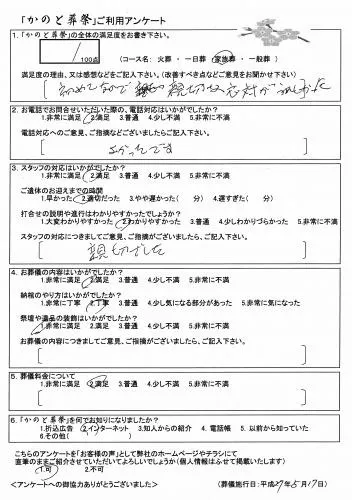 「かのと葬祭」ご利用アンケート
1.「かのと葬祭」の全体の満足度をお書き下さい。
/100点 (コース名: 火葬 ・ 一日葬 ・ 家族葬 ・ 一般葬 )
満足度の理由、又は感想などをご記入下さい。(改善すべき点などご意見をお聞かせ下さい)
初めてなので 親切な応対がうれしかった
2. お電話でお問合せいただいた際の、電話対応はいかがでしたか?
1.非常に満足 2.満足 3.普通 4.少し不満 5.非常に不満
電話対応へのご意見、ご指摘などございましたらご記入下さい。
よかったです
3. スタッフの対応はいかがでしたか?
1.非常に満足 2.満足 3.普通 4.少し不満 5.非常に不満
ご遺体のお迎えまでの時間
1.早かった 2.適切だった 3.やや遅かった( 分) 4.遅すぎた( 分)
打合せの説明や進行はわかりやすかったでしょうか?
1.大変わかりやすかった 2.わかりやすかった 3.普通 4.少しわかりづらかった 5.非常に不満
スタッフの対応につきましてご意見、ご指摘がございましたら、ご記入下さい。
親切でした
4. お葬儀の内容はいかがでしたか?
1.非常に満足 2.満足 3.普通 4.少し不満 5.非常に不満
納棺のやり方はいかがでしたか?
1.非常に丁寧 2.丁寧 3.普通 4.少し気になる部分があった 5.非常に気になった
祭壇や遺品の装飾はいかがでしたか?
1.非常に満足 2.満足 3.普通 4.少し不満 5.非常に不満
お葬儀の内容につきましてご意見、ご指摘がございましたら、ご記入下さい。
5. 葬儀料金について
1.非常に満足 2.満足 3.普通 4.少し不満 5.非常に不満
6.「かのと葬祭」を何でお知りになりましたか?
1.折込広告 2.インターネット 3.知人からの紹介 4.電話帳 5.以前から知っていた
6.その他( )
こちらのアンケートを「お客様の声」として弊社のホームページやチラシにて
直筆のままご紹介させていただいてよろしいでしょうか(個人情報はふせて掲載いたします)
1.可 2.不可
<アンケートへの御協力ありがとうございました> (葬儀施行日:平成27年5月17日)